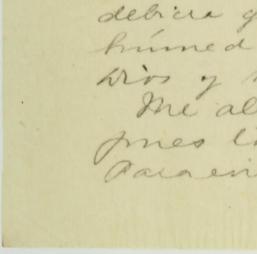 debiera q
húmed
Dios y
Me al
pues l
Para en